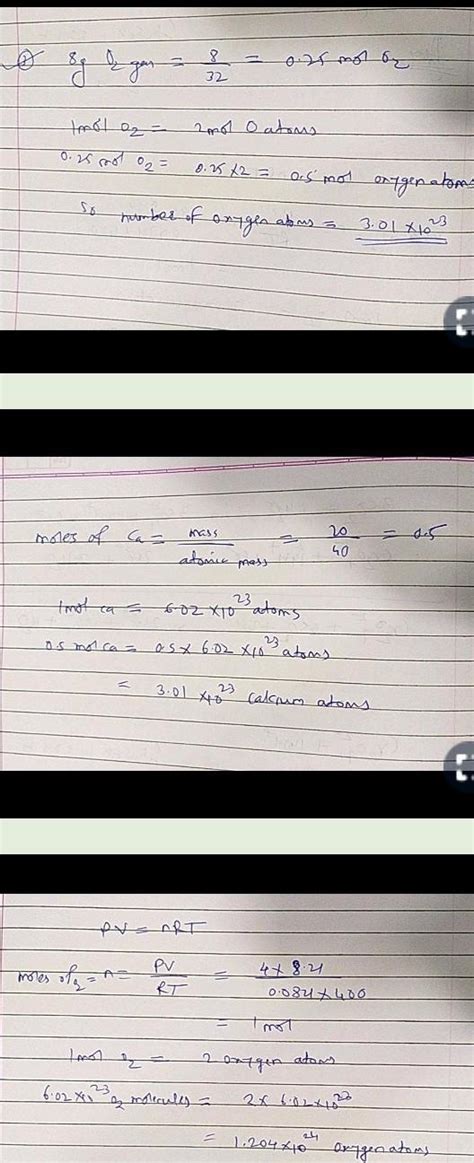 ② 8g O2 gas = 8/32 = 0.25 mol O2
1mol O2 = 2mol O atoms
0.25 mol O2 = 0.25×2 = 0.5 mol oxygen atoms
So number of oxygen atoms = 3.01 ×10^23
moles of Ca = mass/atomic mass = 20/40 = 0.5
1mol ca = 6.02 ×10^23 atoms
0.5 mol ca = 0.5× 6.02 ×10^23 atoms
= 3.01 ×10^23 calcium atoms
PV = nRT
moles of O2 = n = PV/RT = 4× 8.21/0.0821×400
= 1 mol
1mol O2 = 2 oxygen atoms
6.02×10^23 O2 molecules = 2× 6.02×10^23
= 1.204×10^24 oxygen atoms